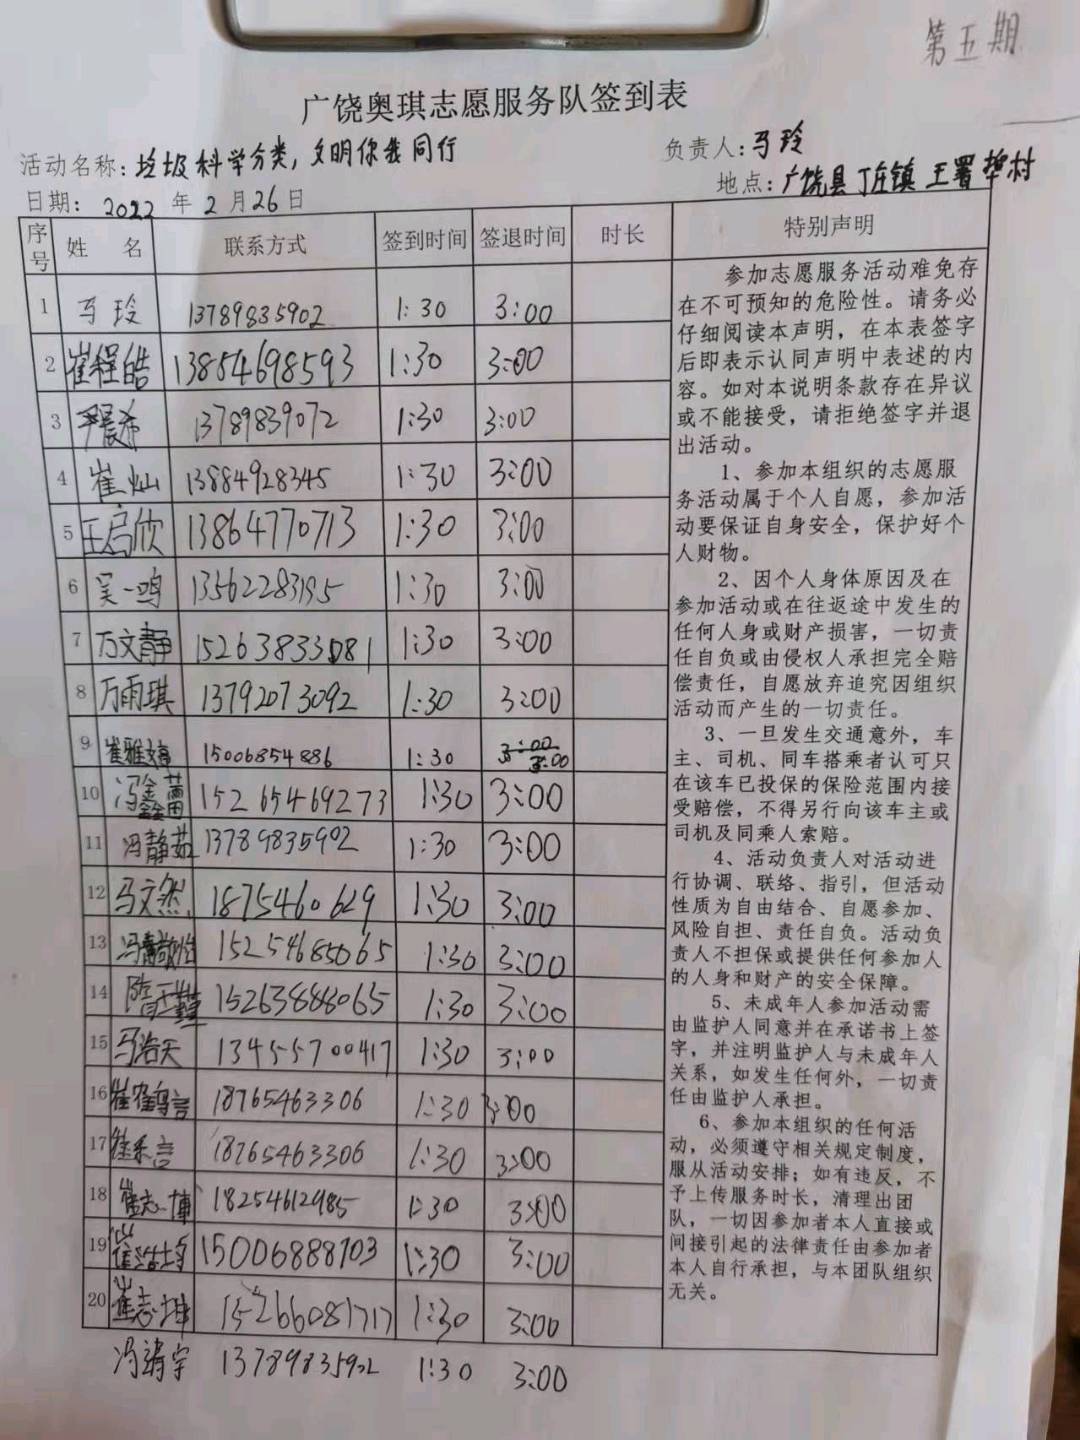 第五期
广饶奥琪志愿服务队签到表
活动名称：垃圾科学分类，文明你我同行 负责人：马玲
日期：2022年2月26日 地点：广饶县丁庄镇王署埠村
序号 姓名 联系方式 签到时间 签退时间 时长 特别声明
1 马玲 13789835902 1:30 3:00
2 崔程皓 13854698593 1:30 3:00
3 13789839072 1:30 3:00
4 崔灿 13884928345 1:30 3:00
5 王启欣 13864770713 1:30 3:00
6 吴一鸣 13562283195 1:30 3:00
7 万文静 15263833081 1:30 3:00
8 万雨琪 13792073092 1:30 3:00
9 崔雅 15006854886 1:30 3:00 3:00
10 冯鑫蕾 15265469273 1:30 3:00
11 冯静茹 13789835902 1:30 3:00
12 马文然 1875460629 1:30 3:00
13 冯 15254685065 1:30 3:00
14 隋 15263888065 1:30 3:00
15 马浩天 13455700417 1:30 3:00
16 崔 言 18765463306 1:30 3:00
17 崔 言 18765463306 1:30 3:00
18 崔志 18254612985 1:30 3:00
19 崔浩 15006888703 1:30 3:00
20 崔志坤 15266081717 1:30 3:00
冯 宇 13789835902 1:30 3:00
参加志愿服务活动难免存
在不可预知的危险性。请务必
仔细阅读本声明，在本表签字
后即表示认同声明中表述的内
容。如对本说明条款存在异议
或不能接受，请拒绝签字并退
出活动。
1、参加本组织的志愿服
务活动属于个人自愿，参加活
动要保证自身安全，保护好个
人财物。
2、因个人身体原因及在
参加活动或在往返途中发生的
任何人身或财产损害，一切责
任自负或由侵权人承担完全赔
偿责任，自愿放弃追究因组织
活动而产生的一切责任。
3、一旦发生交通意外，车
主、司机、同车搭乘者认可只
在该车已投保的保险范围内接
受赔偿，不得另行向该车主或
司机及同乘人索赔。
4、活动负责人对活动进
行协调、联络、指引，但活动
性质为自由结合、自愿参加、
风险自担、责任自负。活动负
责人不担保或提供任何参加人
的人身和财产的安全保障。
5、未成年人参加活动需
由监护人同意并在承诺书上签
字，并注明监护人与未成年人
关系，如发生任何外，一切责
任由监护人承担。
6、参加本组织的任何活
动，必须遵守相关规定制度，
服从活动安排；如有违反，不
予上传服务时长，清理出团
队，一切因参加者本人直接或
间接引起的法律责任由参加者
本人自行承担，与本团队组织
无关。